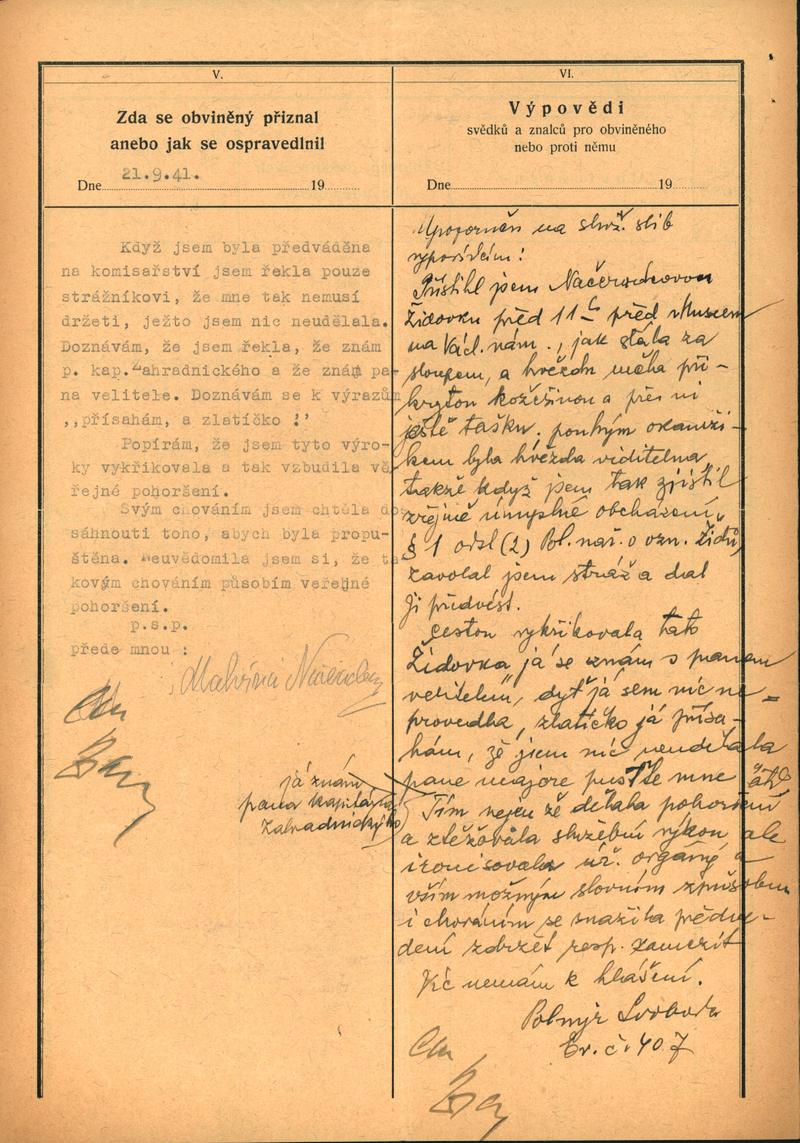 V.
Zda se obviněný přiznal
anebo jak se ospravedlnil
Dne 21.9.41. 19
Když jsem byla předváděna
na komisařství jsem řekla pouze
strážníkovi, že mne tak nemusí
držeti, ježto jsem nic neudělala.
Doznávám, že jsem řekla, že znám
p. kap. Zahradnického a že znám pa-
na velitele. Doznávám se k výrazům
,,přísahám, a zlatíčko !'
Popírám, že jsem tyto výro-
ky vykřikovala a tak vzbudila ve
řejné pohoršení.
Svým chováním jsem chtěla do
sáhnouti toho, abych byla propu-
štěna. Neuvědomila jsem si, že ta
kovým chováním působím veřejné
pohoršení.
p.s.p.
přede mnou :
já znám
pana kapitána
Zahradnického
VI.
Výpovědi
svědků a znalců pro obviněného
nebo proti němu
Dne 19
Upozorněn na služ. slib
vypovídám:
Přistihl jsem
Židovku před 11 před Museem
na Václ. nám., jak stála za
sloupem, a hvězdu měla při-
krytou kožešinou a přes ni
ještě tašku, pouhým okamži-
kem byla hvězda viditelna
takže když jsem tak zjistil
zřejmé úmyslné obcházení
§ 1 odst (2) Pol. nař. o ozn. Židů,
zavolal jsem stráž a dal
ji předvést.
Cestou vykřikovala tato
Židovka „já se znám s panem
velitelem", dyť já sem nic ne-
provedla, zlatíčko já přísa-
hám, že jsem nic neudělala
pane majore pusťte mne atd
Tím nejen že dělala pohoršení
a ztěžovala služební výkon ale
ironisovala úř. orgány a
vším možným slovním způsobem
i chováním se snažila předve-
dení zdržet resp. zamezit
Víc nemám k hlášení.
Svoboda
Ev. č. 407